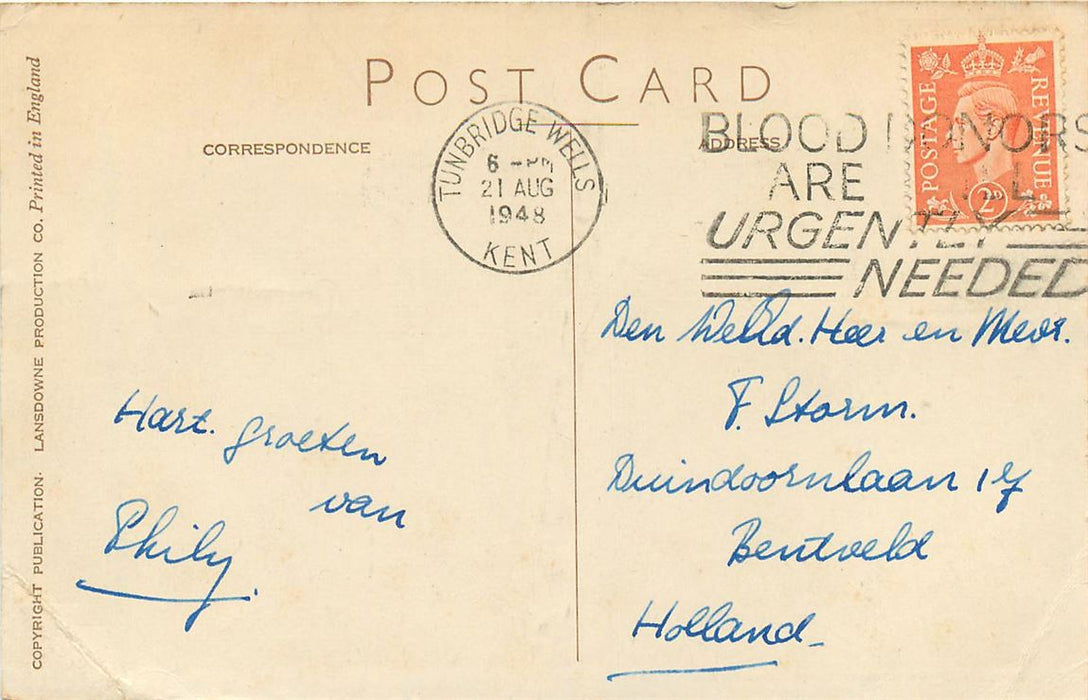 POST CARD
CORRESPONDENCE
ADDRESS
TUNBRIDGE WELLS
6 - PM
21 AUG
1948
KENT
BLOOD DONORS
ARE STILL
URGENTLY
NEEDED
POSTAGE
REVENUE
2D
Hart. groeten
van
Phily.
Den Weled. Heer en Mevr.
F. Storm.
Duindoornlaan 17
Bentveld
Holland
COPYRIGHT PUBLICATION. LANSDOWNE PRODUCTION CO. Printed in England